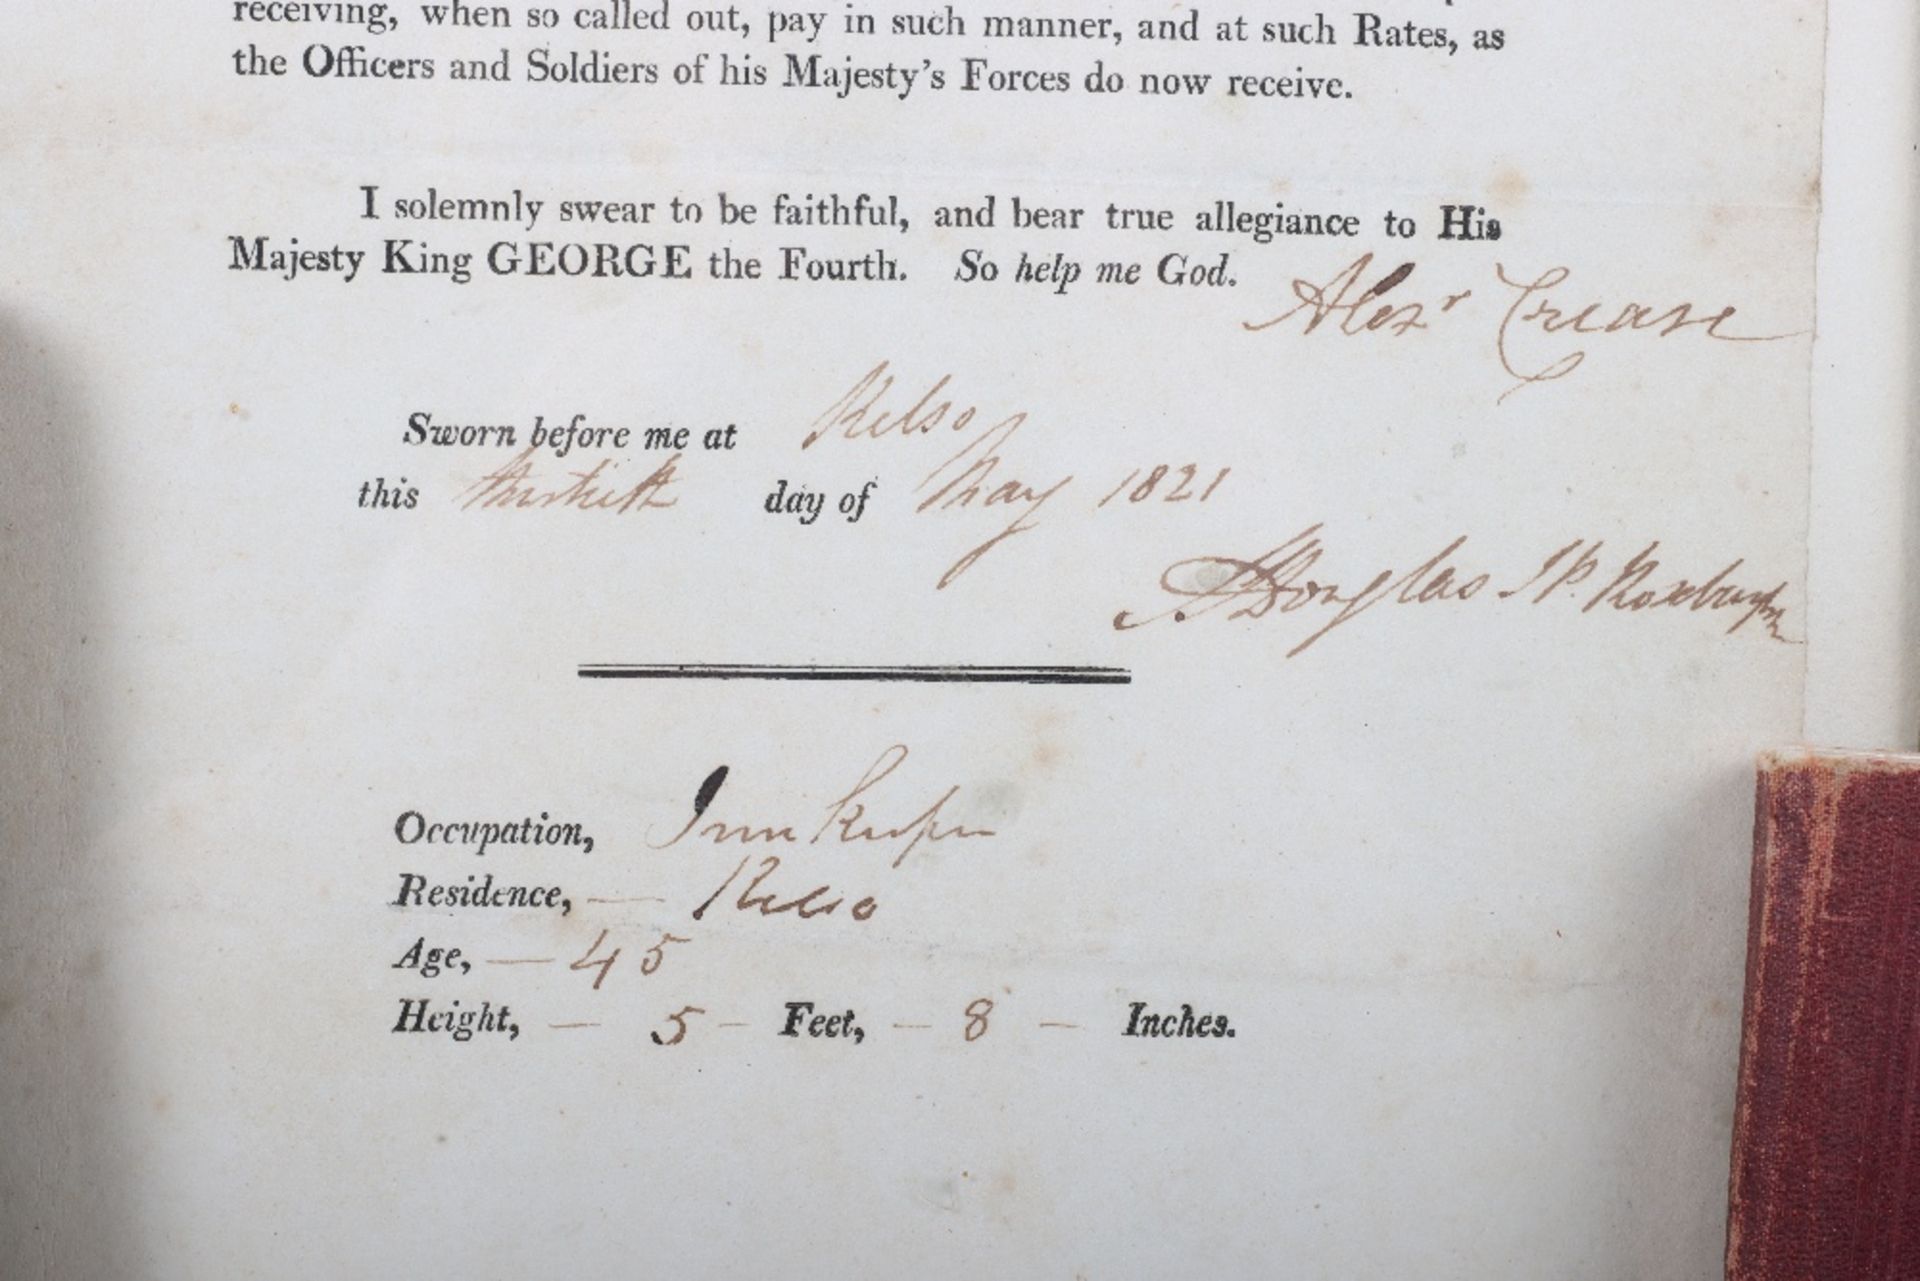 receiving, when so called out, pay in such manner, and at such Rates, as
the Officers and Soldiers of his Majesty's Forces do now receive.
I solemnly swear to be faithful, and bear true allegiance to His
Majesty King GEORGE the Fourth. So help me God.
Alexr Crease
Sworn before me at Kelso
this thirtieth day of May 1821
Douglas JP. Roxburghsh
Occupation, Innkeeper
Residence, — Kelso
Age, — 45
Height, — 5 — Feet, — 8 — Inches.